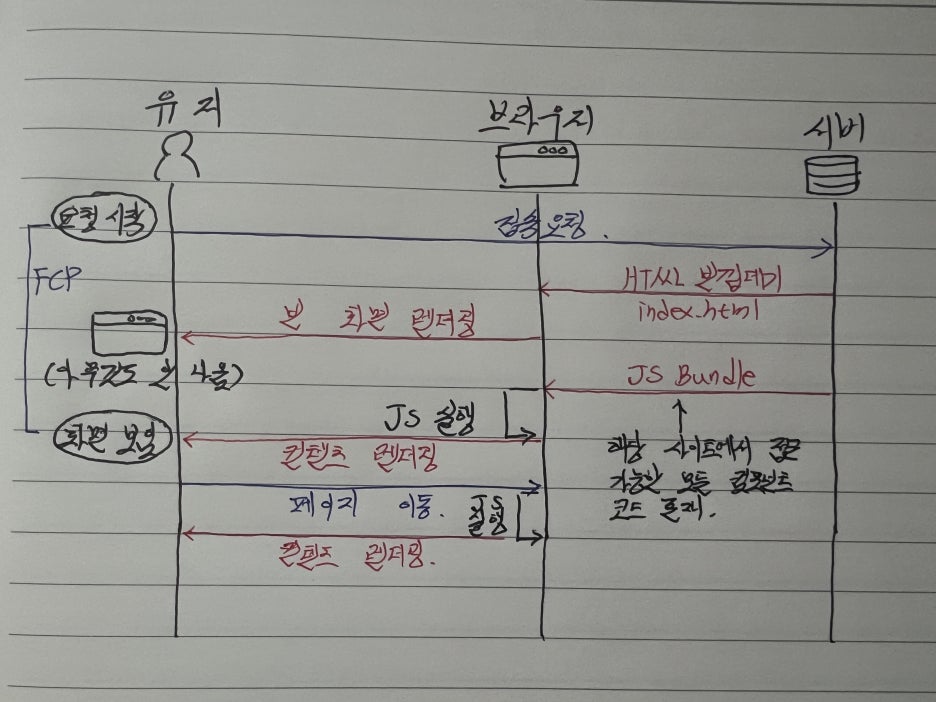 유저
브라우저
서버
요청 시작
접속 요청.
FCP
HTML 껍데기
index.html
빈 화면 렌더링
(아무것도 안 나옴)
JS Bundle
JS 실행
화면 보임
컨텐츠 렌더링
해당 사이트에서 접근
가능한 모든 컴포넌트
코드 존재.
페이지 이동.
JS
실행
컨텐츠 렌더링.